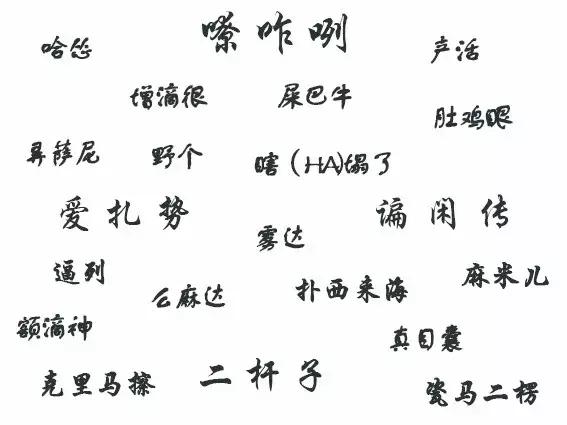 哈怂
嘹咋咧
声活
增滴很
屎巴牛
肚鸡眼
弄啥尼
野个
瞎（HA)塌了
爱扎势
谝闲传
雾达
逼列
么麻达
扑西来海
麻米儿
额滴神
真目囊
克里马擦
二杆子
瓷马二楞